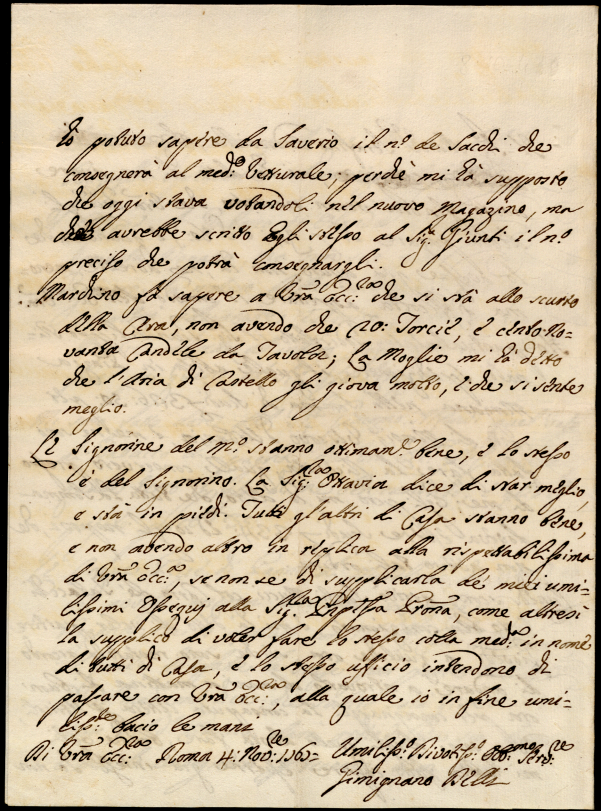 hò potuto sapere da Saverio il n.º de Sacchi che
consegnerà al med.º Vetturale; perchè mi hà supposto
che oggi stava votandoli nel nuovo Magazino, ma
che avrebbe scritto Egli stesso al Sig.r Giunti il n.º
preciso che potrà consegnargli.
Marchino fà sapere a Vrã Ecc.za che si stà allo scurto
della Cera, non avendo che 20: Torcie, è cento no-
vanta Candele da Tavola; La Moglie mi hà detto
che l'Aria di Castello gli giova molto, e che si sente
meglio.
Le Signorine del M.º stanno ottimam.e bene, è lo stesso
è del Signorino. La Sig.ra Ottavia dice di star meglio,
e stà in piedi. Tutti gl'altri di Casa stanno bene,
e non avendo altro in replica alla rispettabilissima
di Vrã Ecc.a, se non se di supplicarla de miei umi-
lissimi Ossequj alla Sig.ra Prñpssa Prõna, come altresì
la supplico di voler fare lo stesso colla med.a in nome
di tutti di Casa, è lo stesso ufficio intendono di
passare con Vrã Ecc.za, alla quale io in fine umi-
liss.te bacio le mani
Di Vrã Ecc.za Roma 4: Nov.re Umiliss.º Divotiss.º Obb.mo Serv.re
Gimignano Belli